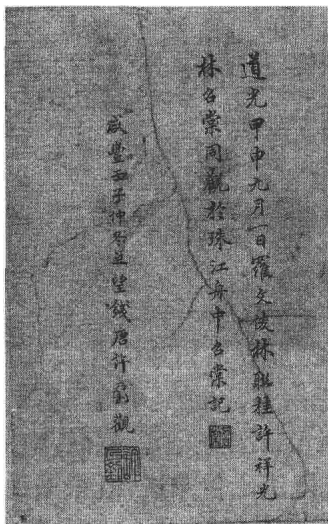 道光甲申九月一日羅文俊林聯桂許祥光
林召棠同觀於珠江舟中召棠記
咸豐壬子仲冬望錢唐許觀